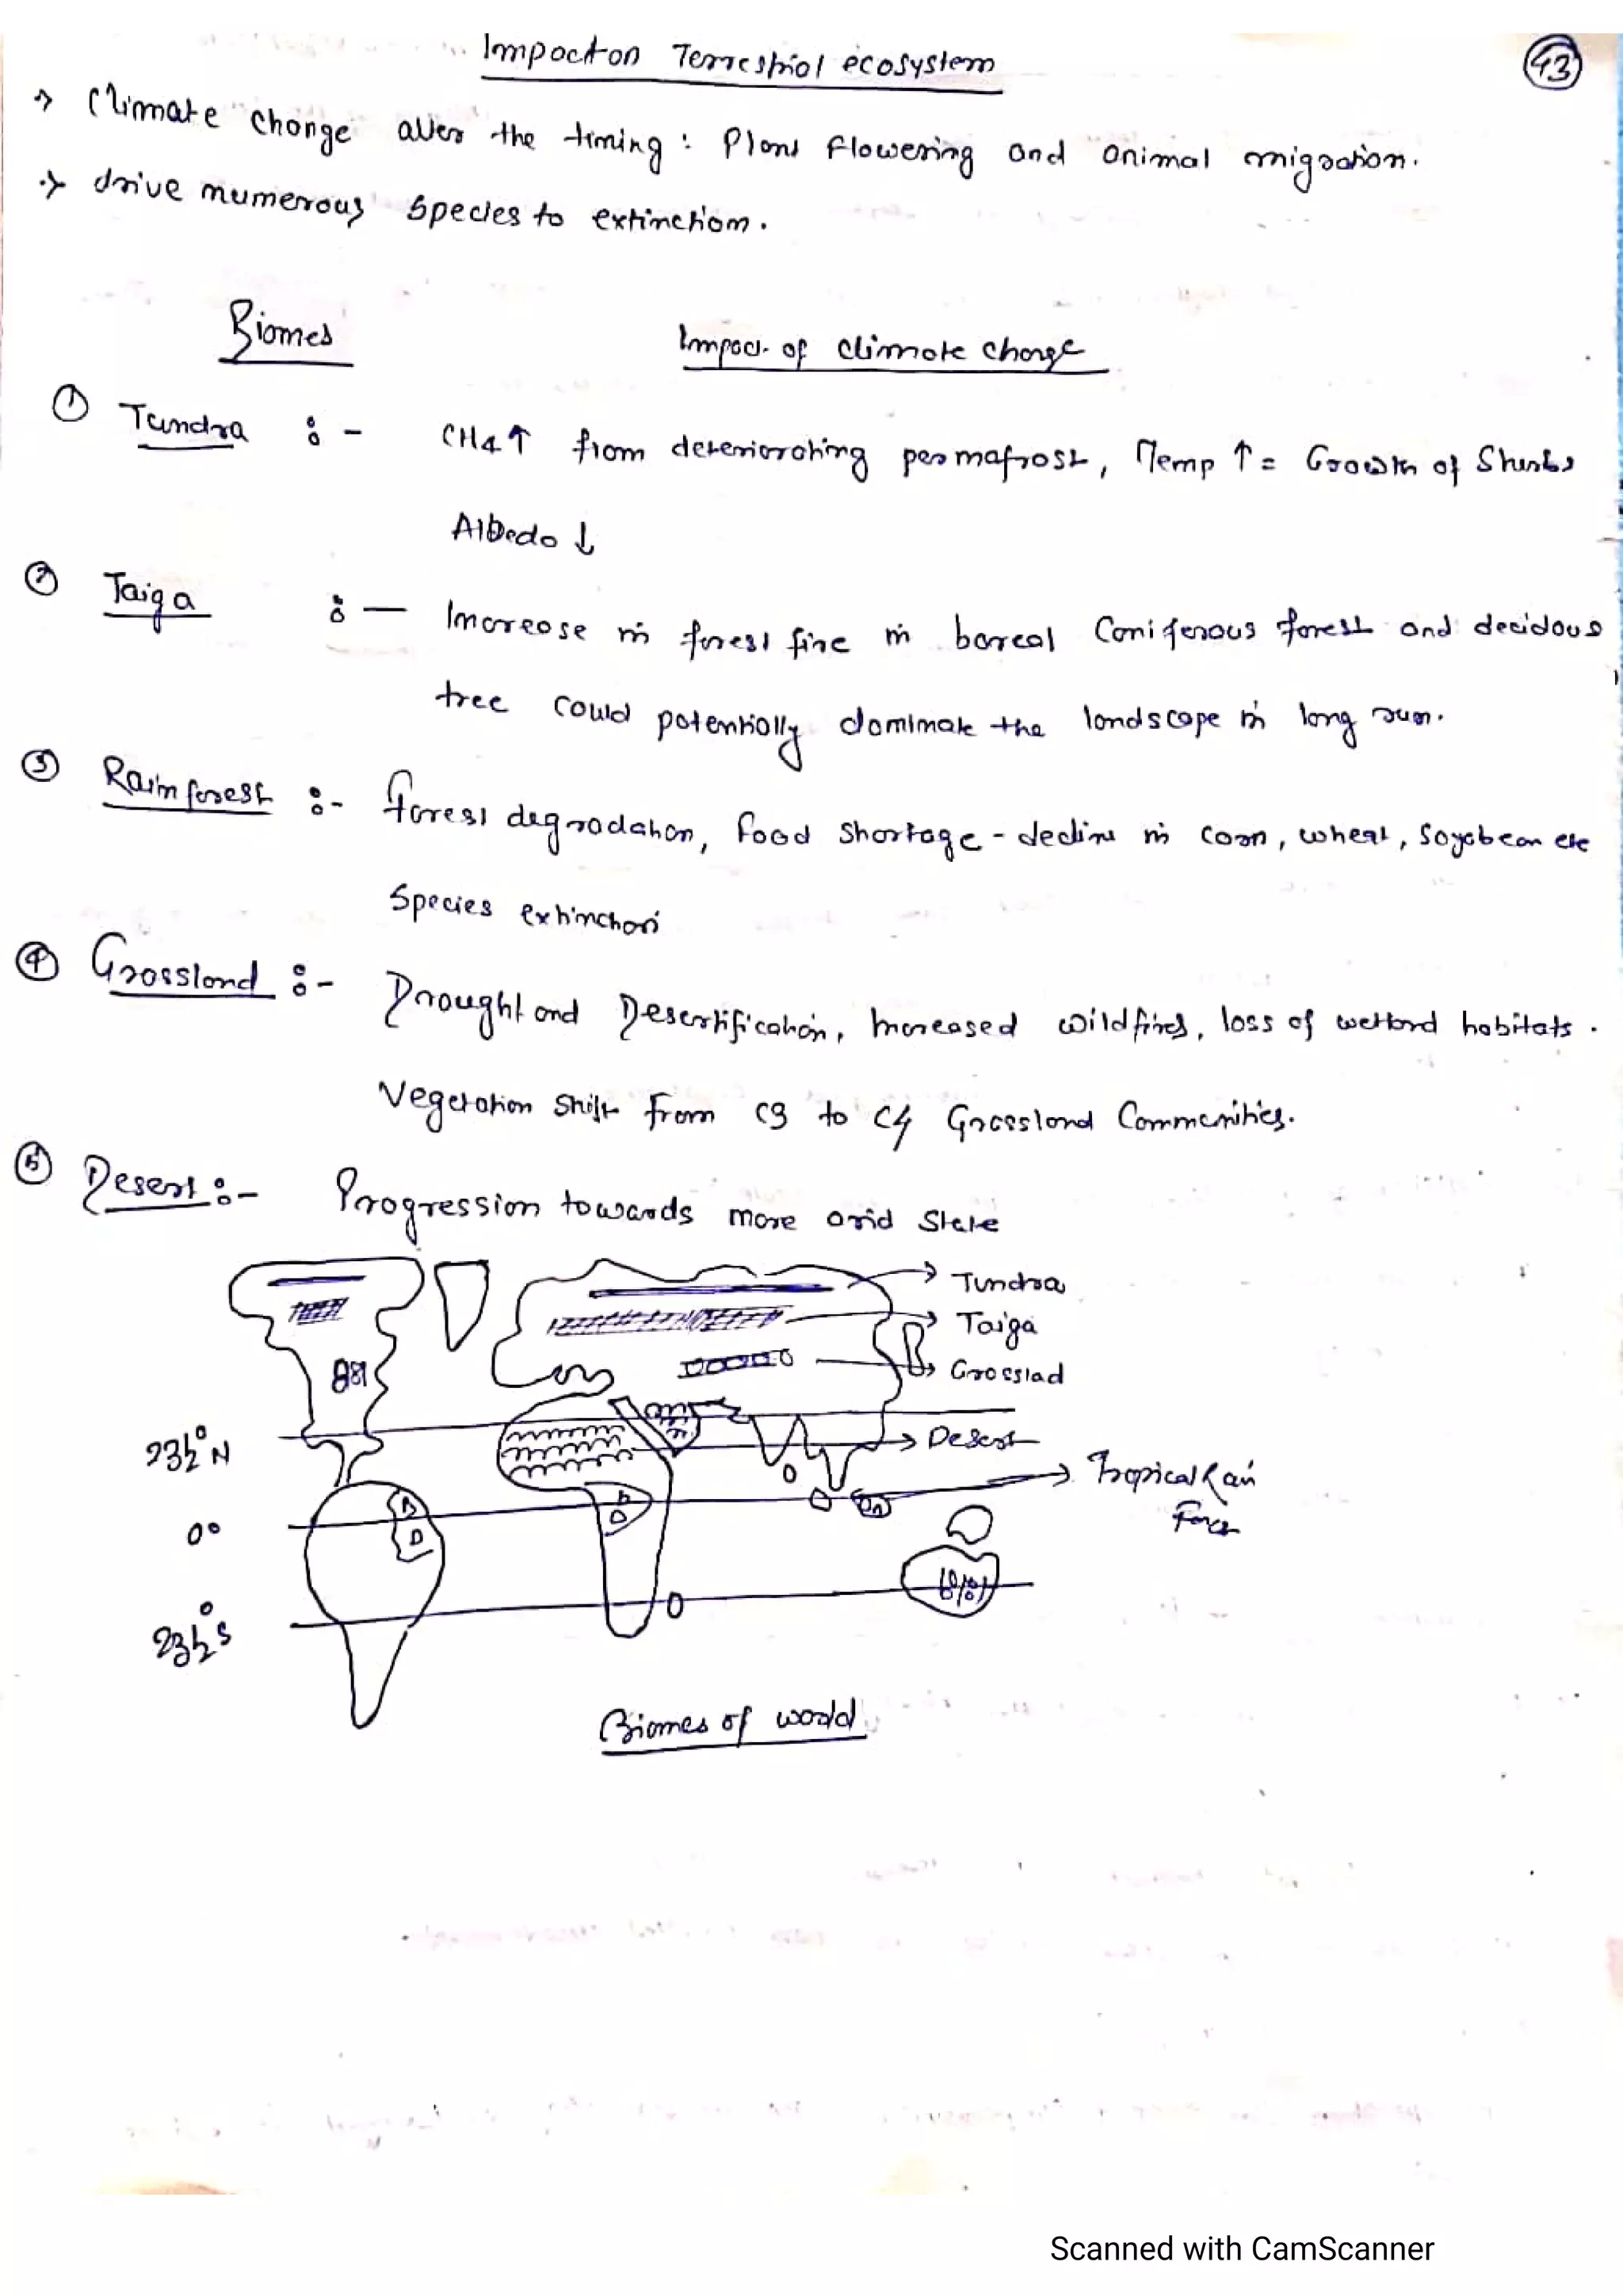 Impact on Terrestrial ecosystem
43
→ Climate change alter the timing : Plant Flowering and animal migration.
→ drive numerous species to extinction.
Biomes
Impact of climate change
① Tundra :- CH4↑ from deteriorating permafrost, Temp ↑ = Growth of Shurbs
Albedo ↓
② Taiga :— Increase in forest fire in boreal Coniferous forest and decidous
tree could potentially dominate the landscape in long run.
③ Rainforest :- forest degradation, food shortage - decline in corn, wheat, soyabean etc
Species extinction
④ Grassland :- Drought and Desertification, Increased wildfires, loss of wetland habitats.
Vegetation shift from C3 to C4 Grassland Communities.
⑤ Desert :- Progression towards more arid state
Tundra
Taiga
Grosslad
23½° N
Desert
Tropical Rain
Forest
0°
23½° S
Biomes of world
Scanned with CamScanner